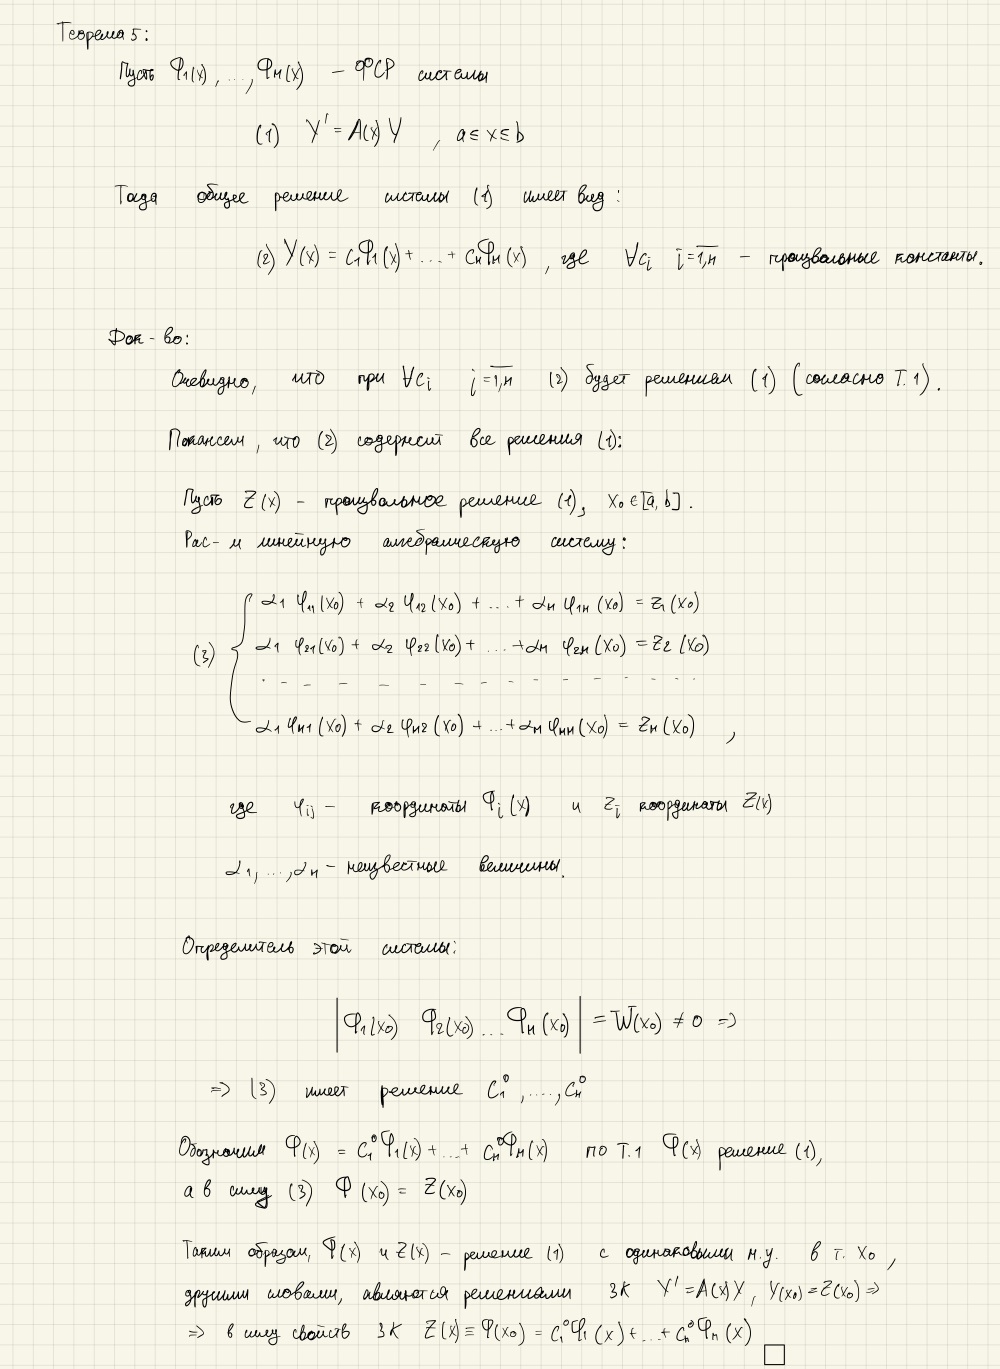 Теорема 5:
Пусть Φ₁(x), ..., Φₙ(x) – ФСР системы
(1) Y' = A(x) Y , a ≤ x ≤ b
Тогда общее решение системы (1) имеет вид:
(2) Y(x) = C₁Φ₁(x) + ... + CₙΦₙ(x) , где ∀cᵢ i = 1,n – произвольные константы.
Док-во:
Очевидно, что при ∀cᵢ i = 1,n (2) будет решением (1) (согласно Т.1).
Покажем, что (2) содержит все решения (1):
Пусть Z(x) – произвольное решение (1), x₀ ∈ [a, b].
Рас-м линейную алгебраическую систему:
α₁ φ₁₁(x₀) + α₂ φ₁₂(x₀) + ... + αₙ φ₁ₙ(x₀) = z₁(x₀)
(3) α₁ φ₂₁(x₀) + α₂ φ₂₂(x₀) + ... + αₙ φ₂ₙ(x₀) = z₂(x₀)
α₁ φₙ₁(x₀) + α₂ φₙ₂(x₀) + ... + αₙ φₙₙ(x₀) = zₙ(x₀) ,
где φᵢⱼ – координаты Φⱼ(x) и zᵢ координаты Z(x)
α₁, ..., αₙ – неизвестные величины.
Определитель этой системы:
|Φ₁(x₀) Φ₂(x₀) ... Φₙ(x₀)| = W(x₀) ≠ 0 =>
=> (3) имеет решение C₁⁰, ...., Cₙ⁰
Обозначим Φ(x) = C₁⁰Φ₁(x) + ... + Cₙ⁰Φₙ(x) по Т.1 Φ(x) решение (1),
а в силу (3) Φ(x₀) = Z(x₀)
Таким образом, Φ(x) и Z(x) – решение (1) с одинаковыми н.у. в т. x₀ ,
другими словами, являются решениями ЗК Y' = A(x)Y, Y(x₀) = Z(x₀) =>
=> в силу свойств ЗК Z(x) ≡ Φ(x₀) = C₁⁰Φ₁(x) + ... + Cₙ⁰Φₙ(x) □